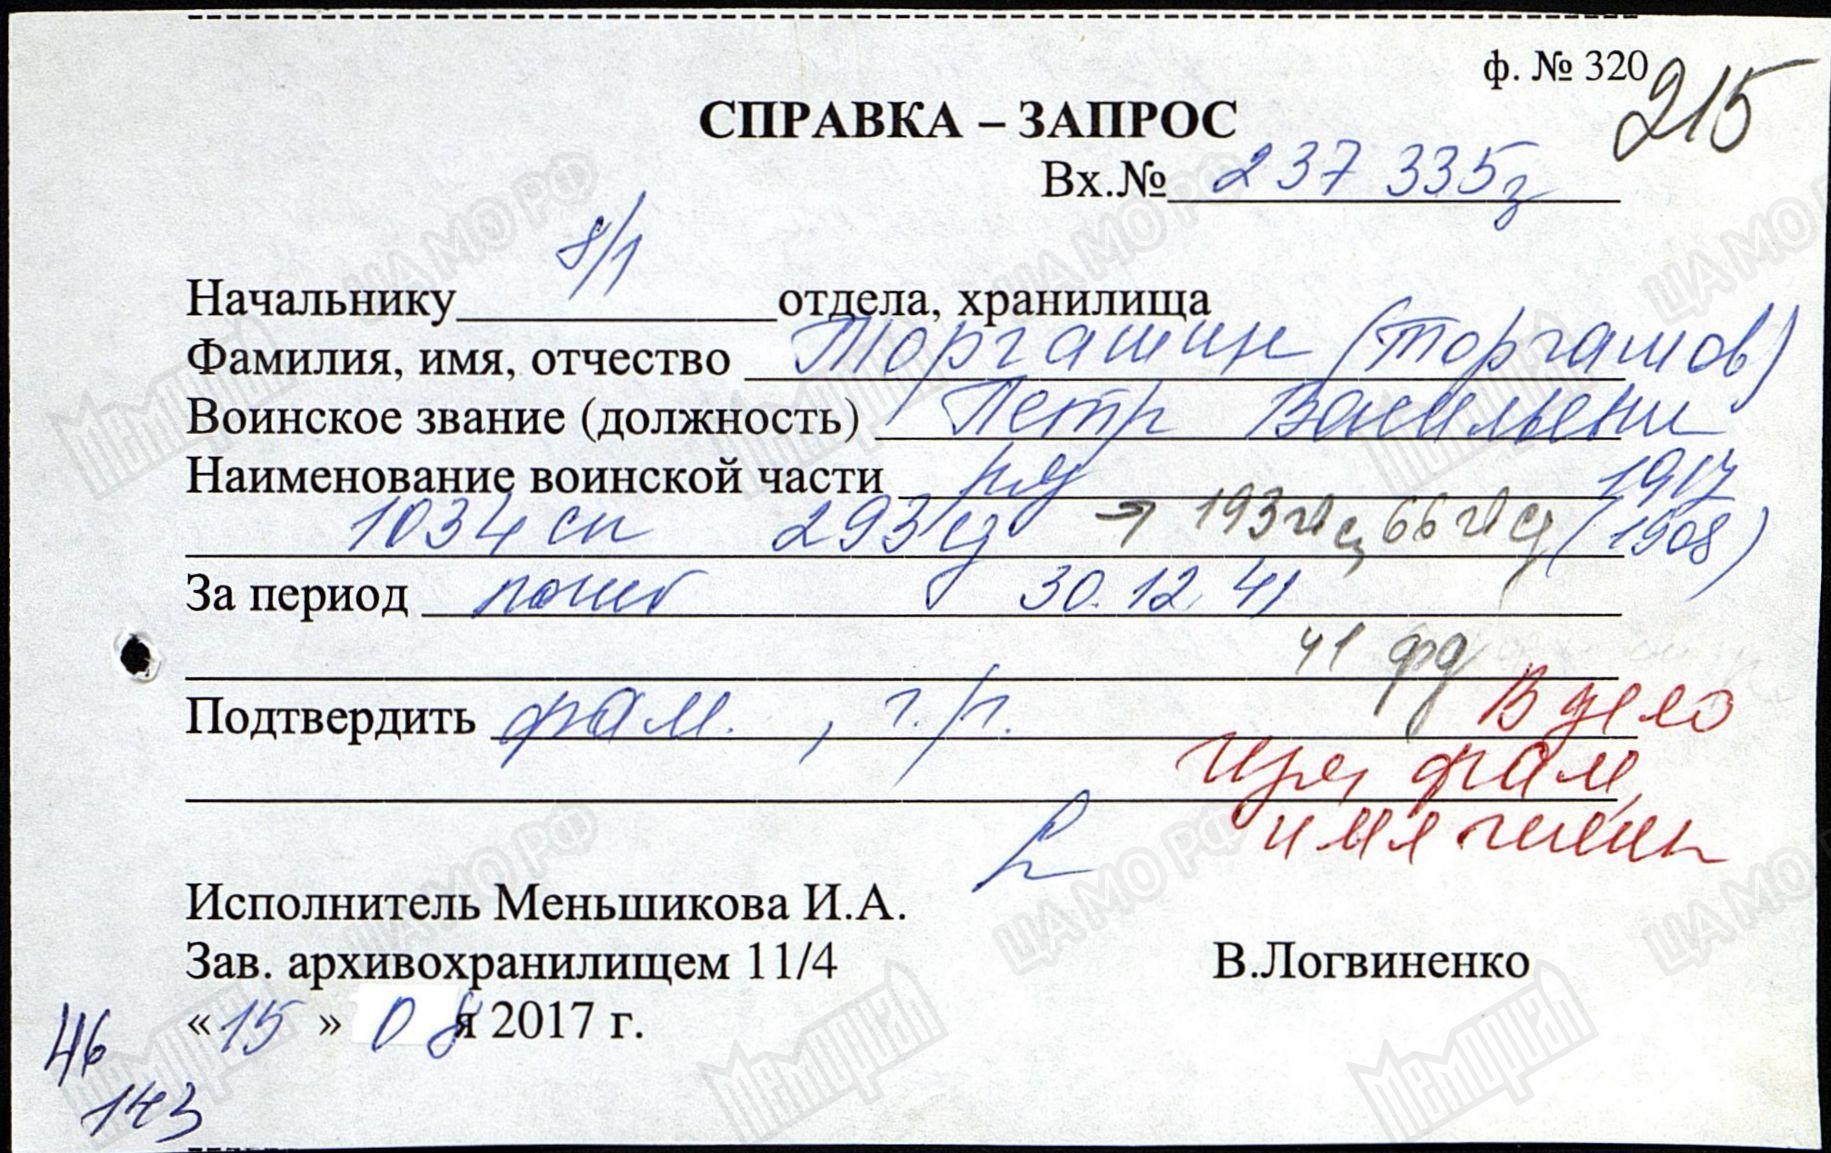 ф. № 320
215
СПРАВКА – ЗАПРОС
Вх.№ 237 335з
8/1
Начальнику отдела, хранилища
Фамилия, имя, отчество Торгашин (Торгашов)
Воинское звание (должность) Петр Васильевич
Наименование воинской части ряд 1917
1034 сп 293 сд → 193 гв сп 66 гв сд (1908)
За период погиб 30.12.41
41
Подтвердить фам., г.р. В дело
фам,
имя
Исполнитель Меньшикова И.А.
Зав. архивохранилищем 11/4 В.Логвиненко
«15» 08 я 2017 г.
46
143
ЦАМО РФ
Мемориал